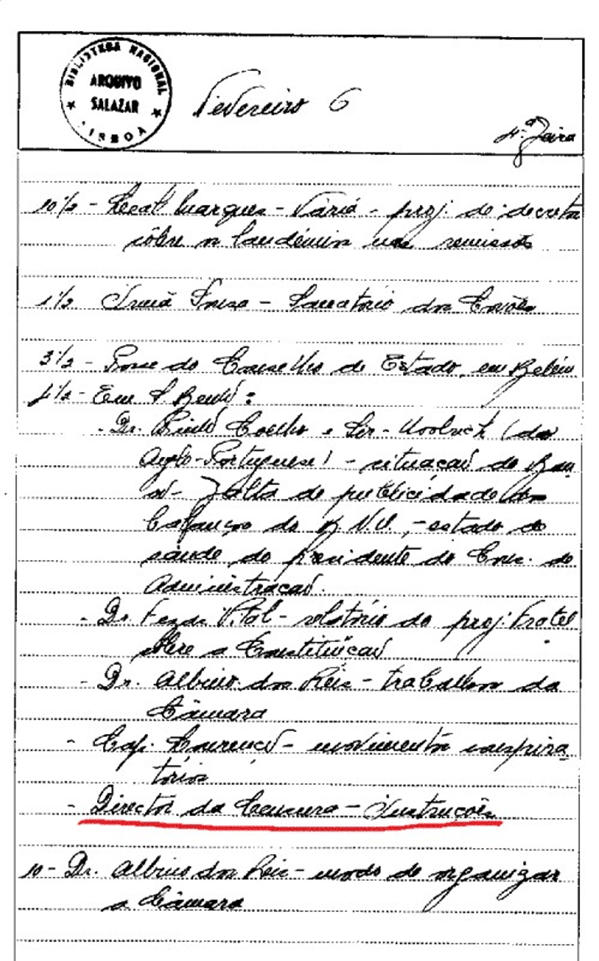 BIBLIOTECA NACIONAL
ARQUIVO
SALAZAR
LISBOA
Fevereiro 6
4.ª feira
10 1/2 - Leal Marques - Vária - proj. de decreto
sôbre o laudémio nas remissões
1 1/2 Irmã - Sanatório dos Covões
3 1/2 - Posse do Conselho de Estado, em Belém
4 1/2 - Em S. Bento:
- Dr. Pinto Coelho e (do
Anglo-Portuguese) - situação do Ban
co - falta de publicidade dos
balanços do B.N.U. - estado de
saúde do presidente do Cons. de
Administração.
- Dr. Fezas Vital - relatório do proj. Fratel
sôbre a Constituição
- Dr. Albino dos Reis - trabalhos da
Câmara
- Cap. Lourenço - movimentos conspira
tórios
- Director da Censura - Instruções
10 - Dr. Albino dos Reis - modo de organizar
a Câmara